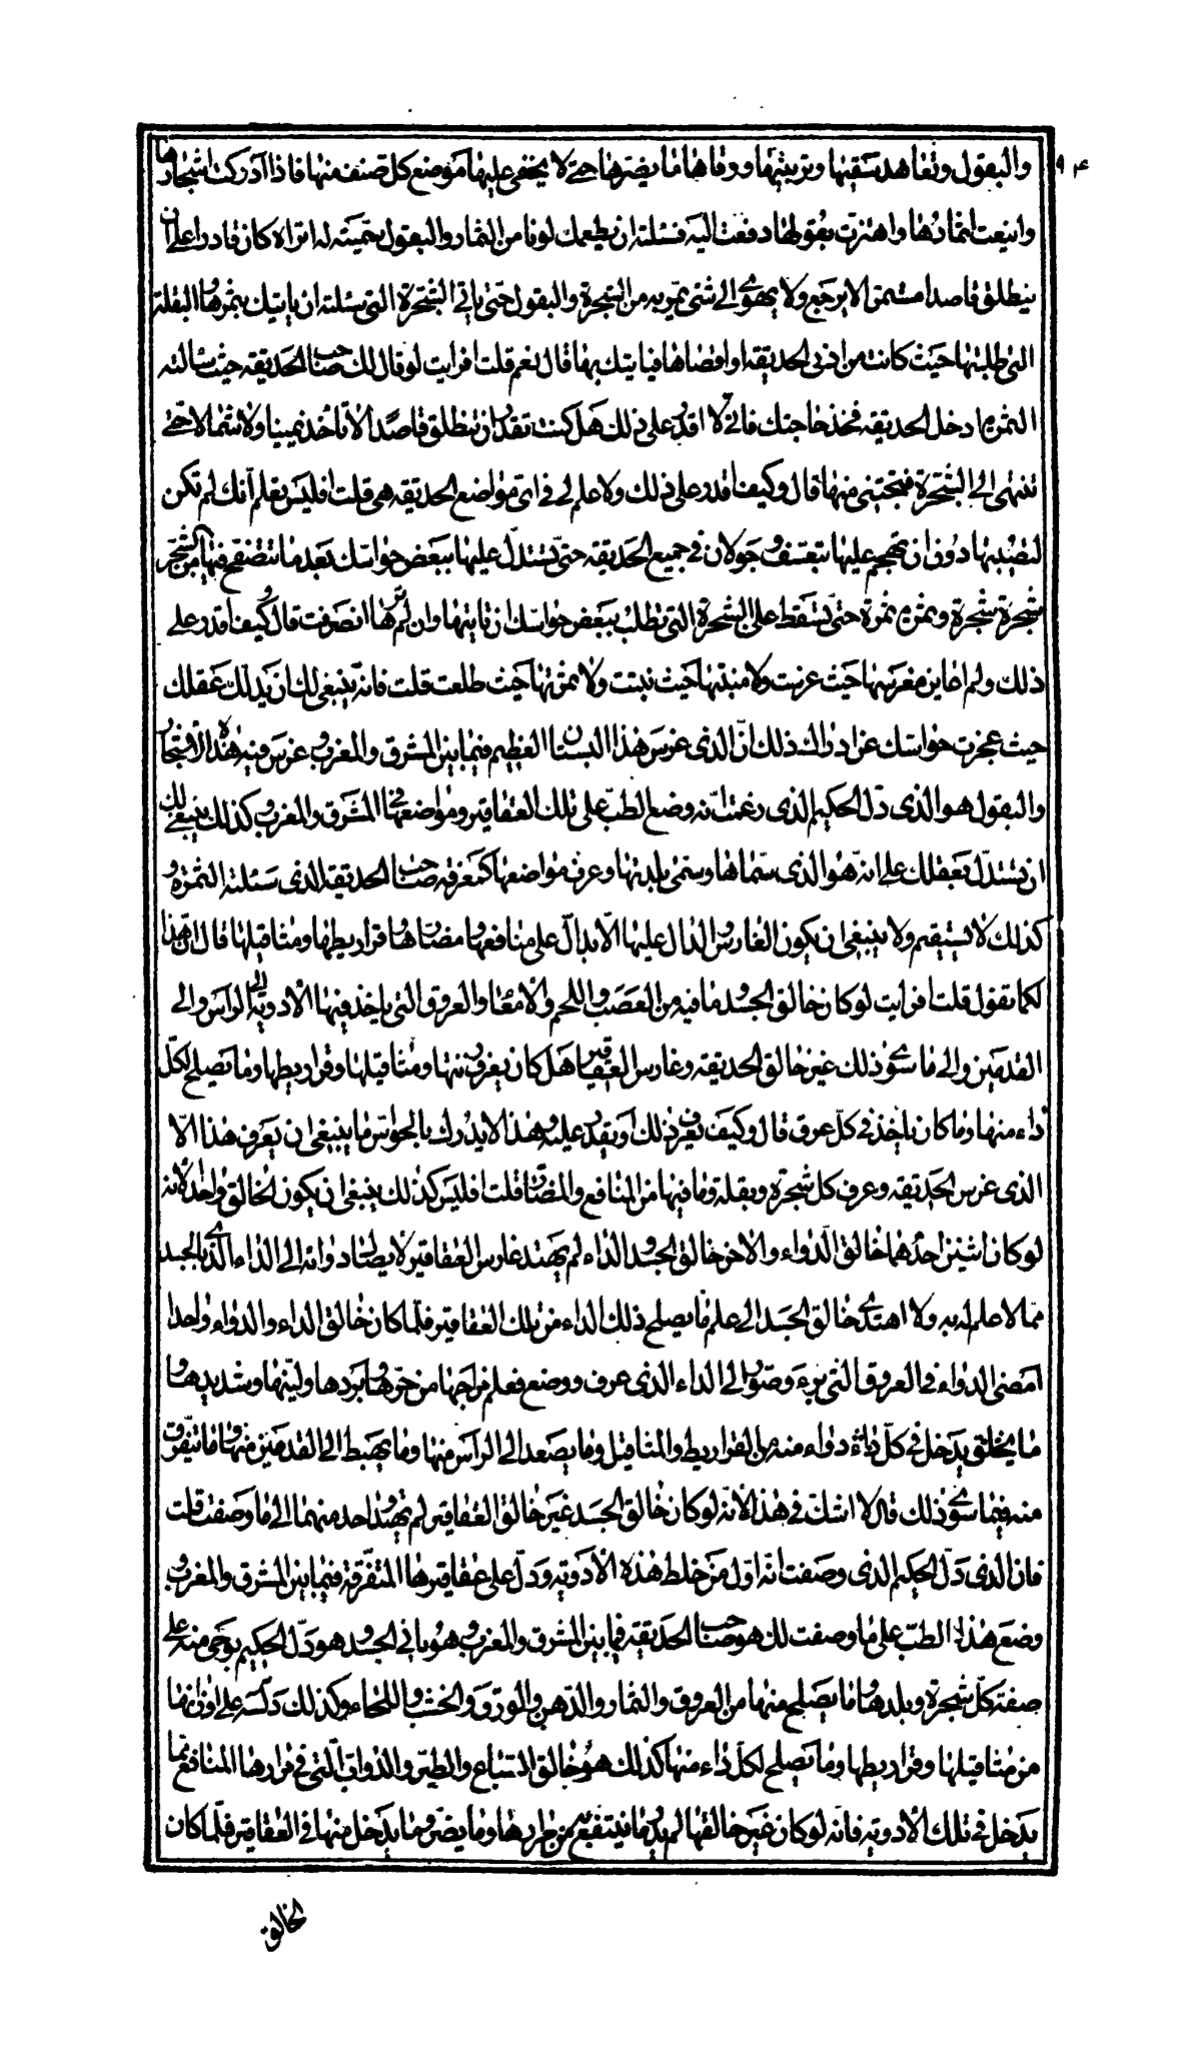 ٩٤
والبقول وتعاهد سقيها وتربيتها ووقاها ما يضرها حتى لا يخفى عليها موضع كل صنف منها فاذا ادركت اشجارها
واينعت اثمارها واهتزت بقولها دفعت اليه فسئلته ان يطعمك لونا من الثمار والبقول سميته له اتراه كان قادرا على ان
ينطلق قاصدا مستمرا لا يرجع ولا يهوى الى شئ يمر به من الشجرة والبقول حتى ياتى الشجرة التى سئلته ان ياتيك بثمرها والبقلة
التى طلبتها حيث كانت من ادنى الحديقه او اقصاها فياتيك بها قال نعم قلت افرايت لو قال لك صاحب الحديقه حيث سالته
الثمرة ادخل الحديقه فخذ حاجتك فانى لا اقدر على ذلك هل كنت تقدر ان تنطلق قاصدا لا تاخذ يمينا ولا شمالا حتى
تنتهى الى الشجرة فتجتنى منها قال وكيف اقدر على ذلك ولا علم لى فى اى مواضع الحديقه هى قلت افليس يعلم انك لم تكن
لتصيبها دون ان تهجم عليها بتعسف وجولان فى جميع الحديقه حتى تستدل عليها ببعض حواسك بعد ما تتصفح فيها من الشجر
شجرة شجرة وثمرة ثمرة حتى تسقط على الشجرة التى تطلب ببعض حواسك ان تاتيها وان لم ترها انصرفت قال وكيف اقدر على
ذلك ولم اعاين مغرسها حيث غرست ولا منبتها حيث نبتت ولا ثمرتها حيث طلعت قلت فانه ينبغى لك ان يدلك عقلك
حيث عجزت حواسك عن ادراك ذلك ان الذى غرس هذا البستان العظيم فيما بين المشرق والمغرب وغرس فيه هذه الاشجار
والبقول هو الذى دل الحكيم الذى زعمت انه وضع الطب على تلك العقاقير ومواضعها فى المشرق والمغرب وكذلك ينبغى لك
ان تستدل بعقلك على انه هو الذى سماها وسمى بلدتها وعرف مواضعها كمعرفة صاحب الحديقه الذى سئلته الثمرة و
كذلك لا يستقيم ولا ينبغى ان يكون الغارس الدال عليها الا الدال على منافعها ومضارها وقراريطها ومثاقيلها قال ان هذا
لكما تقول قلت افرايت لو كان خالق الجسد وما فيه من العصب واللحم والامعاء والعروق التى ياخذ فيها الادويه الى الراس والى
القدمين والى ما سوى ذلك غير خالق الحديقه وغارس العقاقير هل كان يعرف زنتها ومثاقيلها وقراريطها وما يصلح لكل
داء منها وما كان ياخذ فى كل عرق قال وكيف يعرف ذلك او يقدر عليه وهذا لا يدرك بالحواس ما ينبغى ان يعرف هذا الا
الذى غرس الحديقه وعرف كل شجرة وبقلة وما فيها من المنافع والمضار قلت افليس كذلك ينبغى ان يكون الخالق واحدا لانه
لو كان اثنين احدهما خالق الدواء والاخر خالق الجسد والداء لم يهتد غارس العقاقير لايصال دوائه الى الداء الذى بالجسد
مما لا علم له به ولا اهتدى خالق الجسد الى علم ما يصلح ذلك الداء من تلك العقاقير فلما كان خالق الداء والدواء واحدا
امضى الدواء فى العروق التى برء وصور الى الداء الذى عرف ووضع فعلم مزاجها من حرها وبردها ولينها وشديدها و
ما يخلق يدخل فى كل داء دواء منه من القراريط والمثاقيل وما يصعد الى الراس منها وما يهبط الى القدمين منها وما يتفرق
منه فيما سوى ذلك قال لا اشك فى هذا لانه لو كان خالق الجسد غير خالق العقاقير لم يهتد واحد منهما الى ما وصفت قلت
فان الذى دل الحكيم الذى وصفت انه اول من خلط هذه الادويه ودل على عقاقيرها المتفرقة فيما بين المشرق والمغرب و
وضع هذا الطب على ما وصفت لك هو صاحب الحديقه فيما بين المشرق والمغرب وهو بانى الجسد وهو دل الحكيم بوحى منه على
صفة كل شجرة وبلدها وما يصلح منها من العروق والثمار والدهن والورق والخشب واللحاء وكذلك دله على اوزانها
من مثاقيلها وقراريطها وما يصلح لكل داء منها كذلك هو خالق السباع والطير والدواب التى فى مرارها المنافع مما
يدخل فى تلك الادويه فانه لو كان غير خالقها لم يدر ما ينتفع به من مرارها وما يضر وما يدخل منها فى العقاقير فلما كان
الخالق